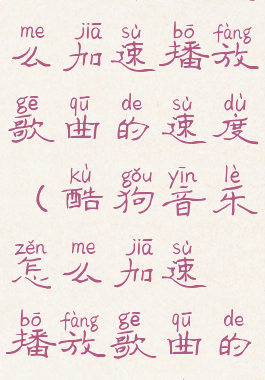 me jiā sù bō fàng
么加速播放
gē qū de sù dù
歌曲的速度
kù gǒu yīn lè
（酷狗音乐
zěn me jiā sù
怎么加速
bō fàng gē qū de
播放歌曲的